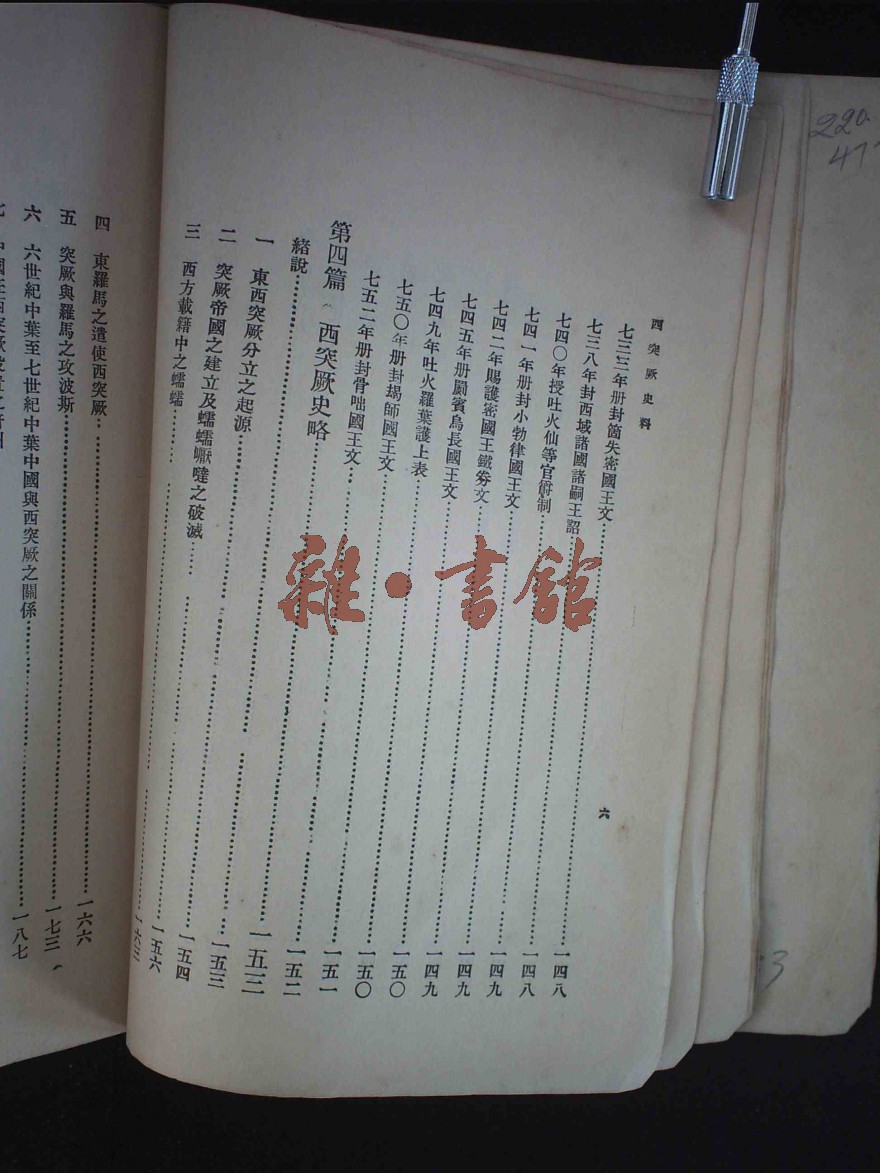 西突厥史料
六
七三三年册封箇失密國王文……一四八
七三八年封西域諸國諸嗣王詔……一四八
七四〇年授吐火仙等官爵制……一四九
七四一年册封小勃律國王文……一四九
七四二年賜護密國王鐵劵文……一四九
七四五年册罽賓烏長國王文……一五〇
七四九年吐火羅葉護上表……一五〇
七五〇年册封朅師國王文……一五一
七五二年册封骨咄國王文……一五二
第四篇 西突厥史略……一五三
緒說……一五三
一 東西突厥分立之起源……一五四
二 突厥帝國之建立及蠕蠕嚈噠之破滅……一五六
三 西方載籍中之蠕蠕……一六三
四 東羅馬之遣使西突厥……一六六
五 突厥與羅馬之攻波斯……一七三
六 六世紀中葉至七世紀中葉中國與西突厥之關係……一八七
雜·書館
220